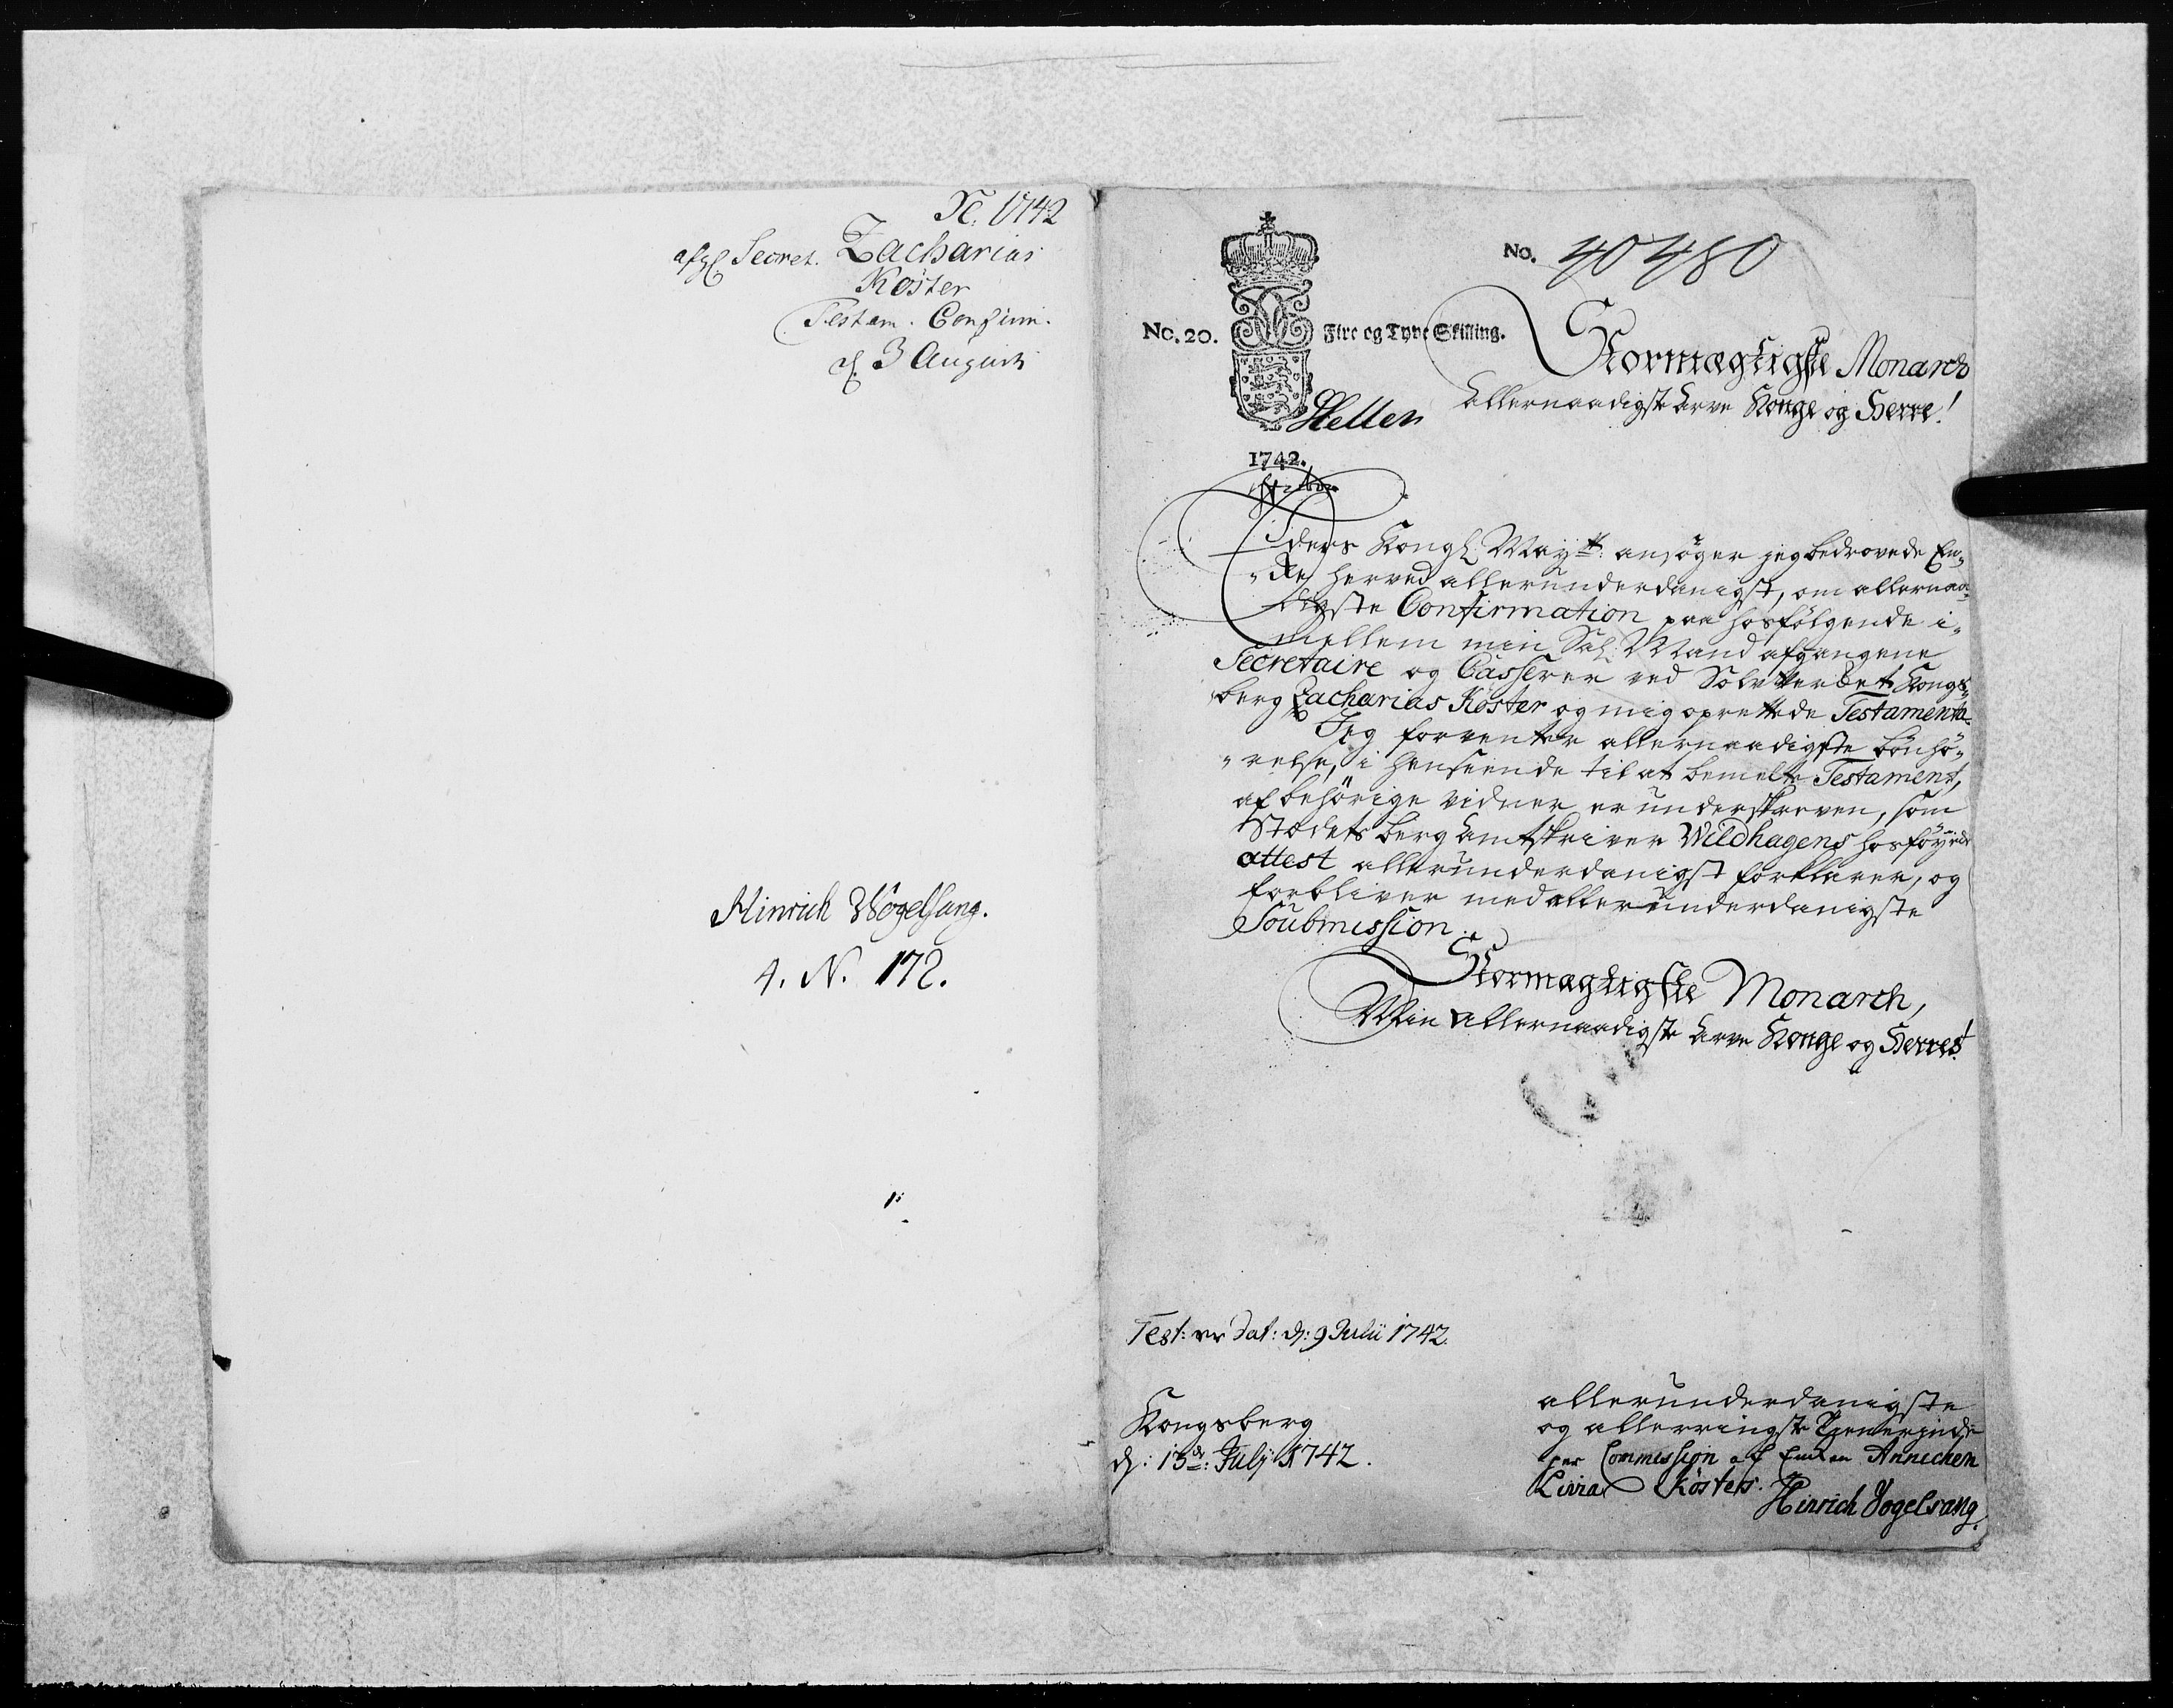 N. 1742
afg Secret. Zacharias
Köster
Testam. Confirm.
d. 3 Augusti
Hinrich Vogelsang.
4. N. 172.
No. 40480
No. 20. Fire og Tyve Skilling.
Stormægtigste Monarch
Allernaadigste Arve Konge og Herre!
Hellen
1742.
Eders Kongl. Mayt: ansøger jeg bedrøvede En-
-ke herved allerunderdanigst, om allernaa-
digste Confirmation paa hosfølgende i-
mellem min Sal: Mand afgangene
Secretaire og Casserer ved Sølvverket Kongs-
berg Zacharias Köster og mig oprettede Testamente.
Jeg forventer allernaadigste bönhö-
-relse, i henseende til at bemelte Testament,
af behörige vidner er underskreven, som
Stædets berg Amtskriver Wildhagens hosföyede
attest allerunderdanigst forklarer, og
forbliver med allerunderdanigste
Soubmission.
Stormægtigste Monarch,
Min Allernaadigste Arve Konge og Herres!
Test: er dat: d: 9 Julii 1742.
Kongsberg
d: 13de: Julij 1742.
allerunderdanigste
og allerringste Tienerinde
per Commission af Enken Annichen
Livia Kösters.
Hinrich Vogelsang.